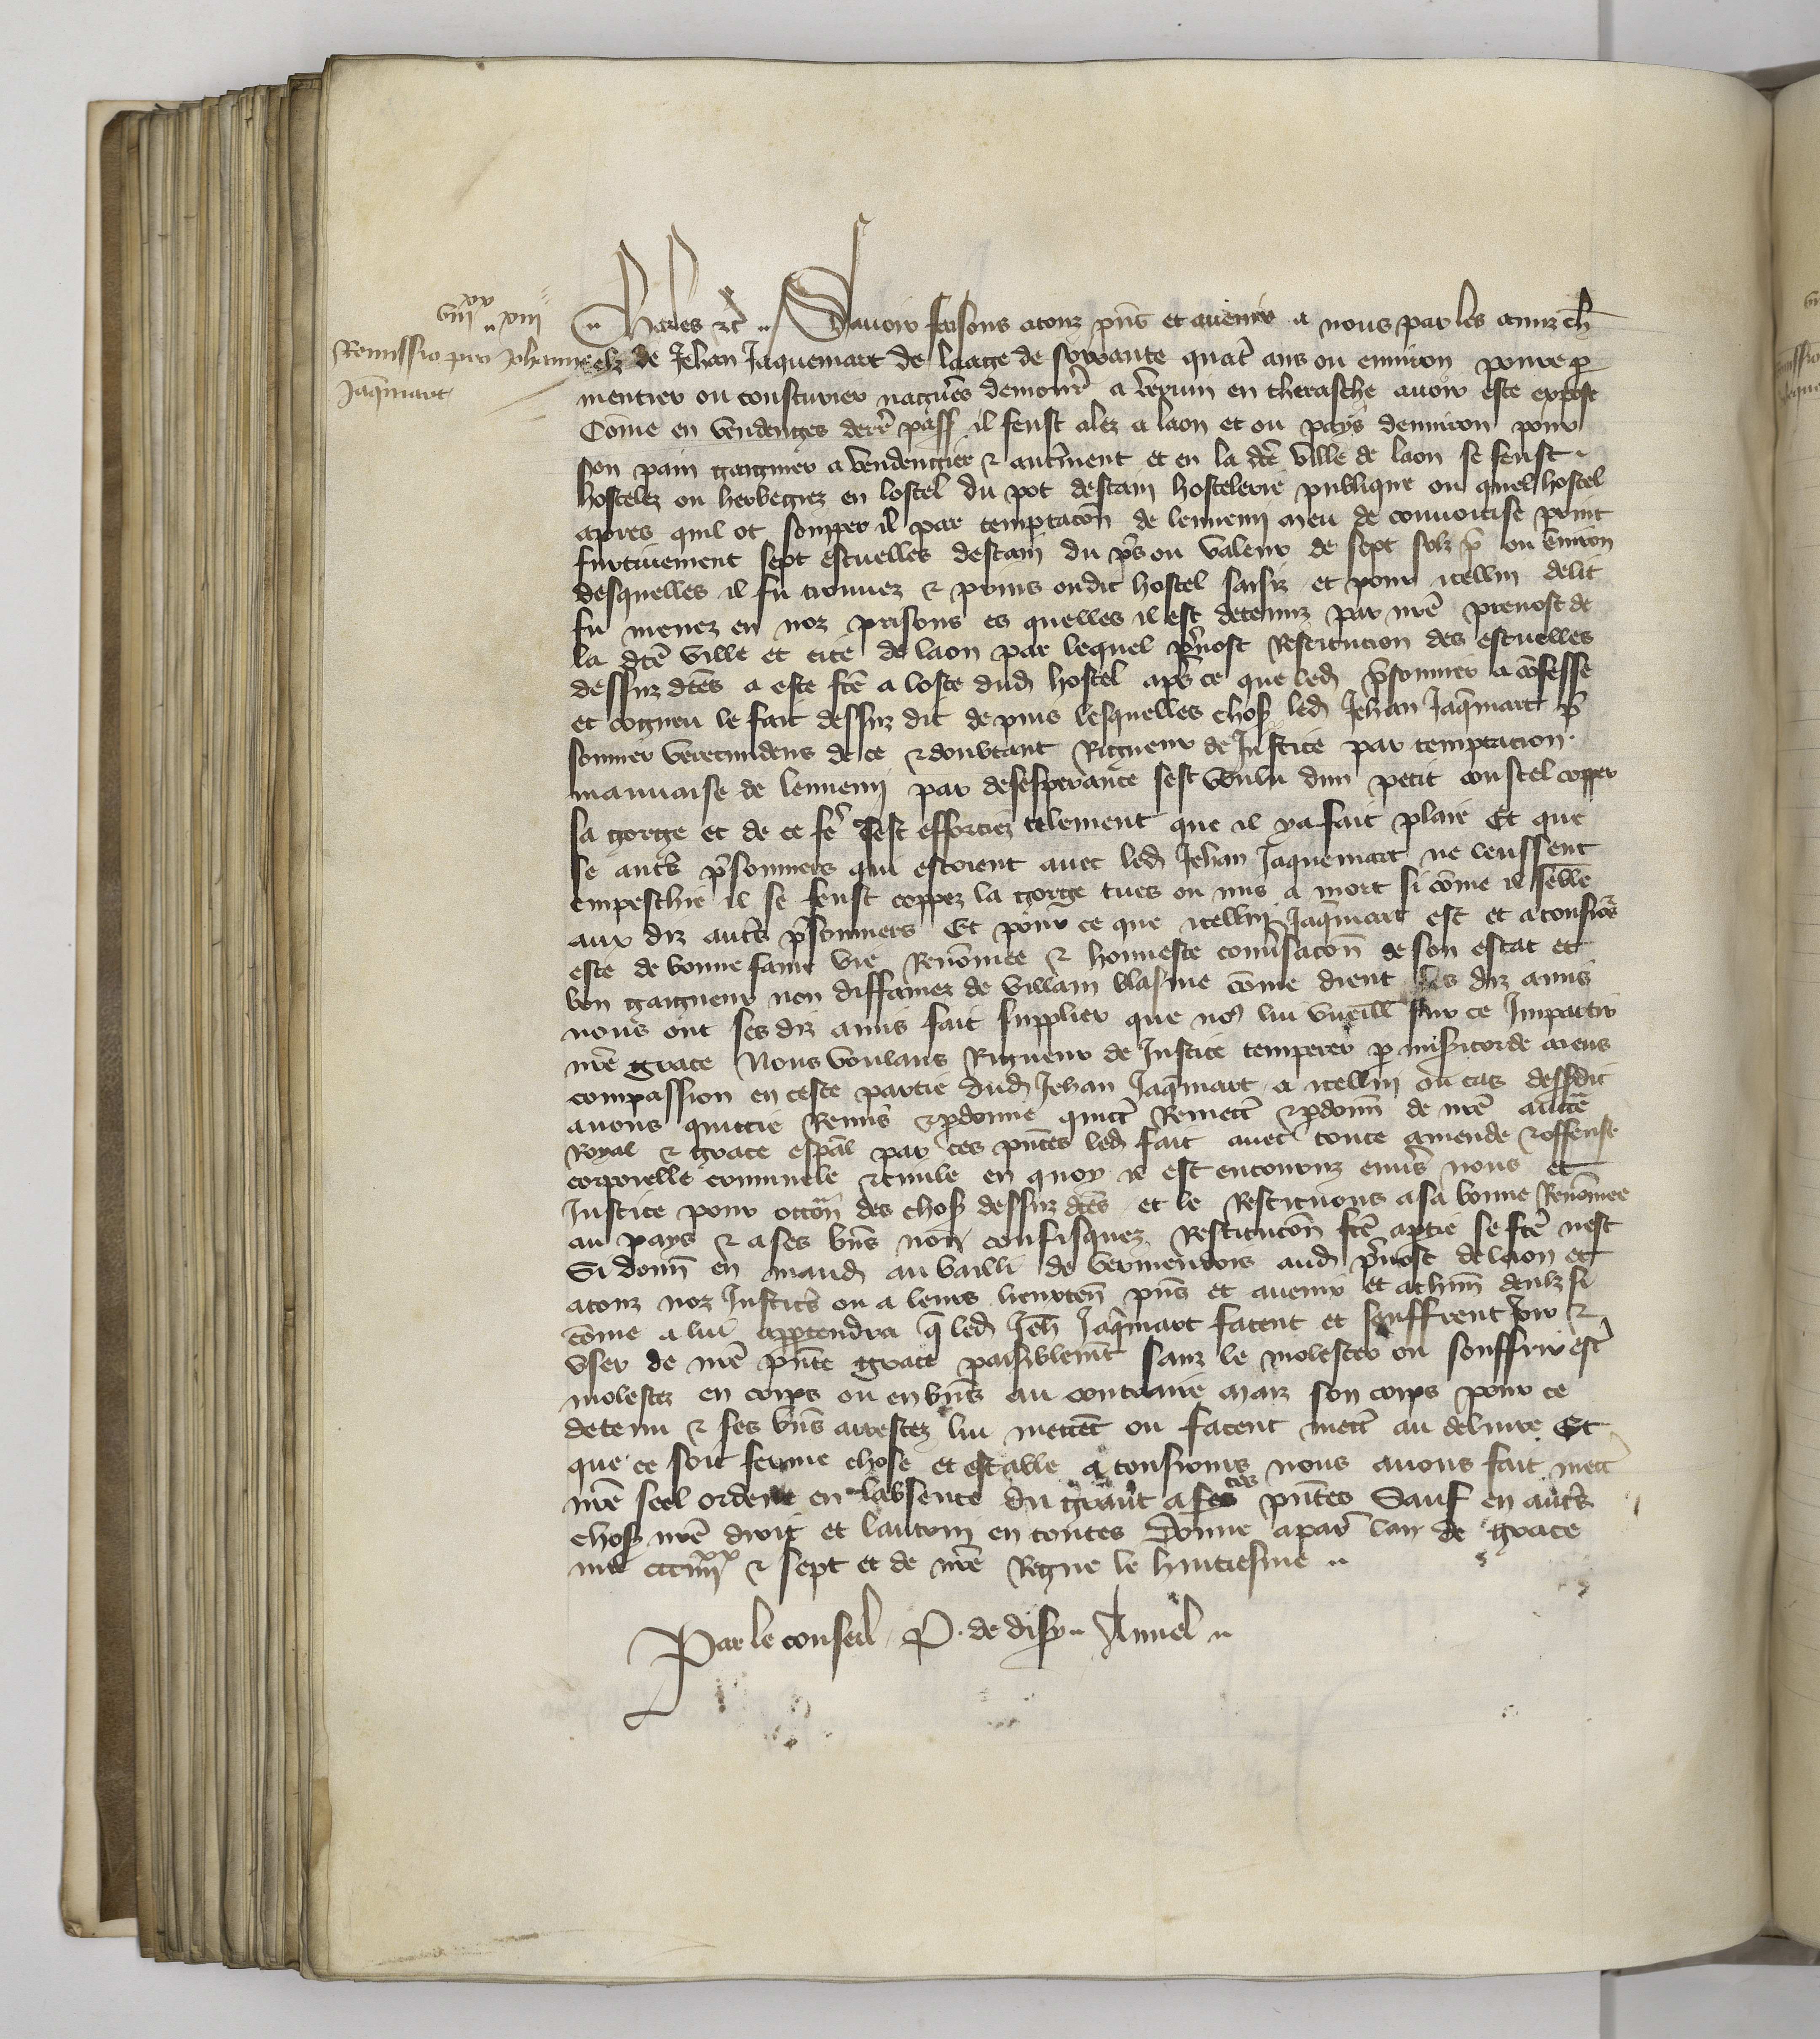 viiixx xiii
Remissio pro Johanne
Jaq̄mart
Charles ⁊c̄ Sauoir faisons a touz pn̄s et auenir a nous par les amiz ch
elz de Jehan Jaquemart de laage de soixante quat̄ ans ou enuiron poure p
mentier ou cousturier nagueres demour̄ a veruin en therasche auoir este expose
Cōme en vendenges derr̄ pass̄ il feust alez a laon et ou pays denuiron pour
son pain gaignier a vendengier ⁊ autr̄ment et en la dc̄e ville de laon se feust
hostelez ou herbegiez en lostel du pot destain hostelerie publique ou quel hostel
apres quil ot soupper il par temptacōn de lennemi meu de conuoitise print
furtiuement sept escuelles destain du p̄s ou valeur de sept solz p̄ ou enuiron
desquelles il fu trouuez ⁊ prins oudit hostel saisiz et pour icellui delit
fu menez en noz prisons es quelles il est detenuz par nr̄e preuost de
la dc̄e ville et cite de laon par lequel p̄uost Restitucion des escuelles
dessuz dc̄es a este fc̄e a loste dud hostel apr̄s ce que led p̄sonnier a cōfesse
et cogneu le fait dessuz dit depuis lesquelles chos̄ led Jehan Jaq̄mart p̄
sonnier verecundeus de ce ⁊ doubtant Rigueur de Justice par temptacion
mauuaise de lennemi par desesperance sest voulu dun petit coustel copper
sa gorge et de ce fe᷑ sest efforciez telement que il y a fait plaie Et que
se autr̄s p̄sonniers qui estoient auec led Jehan Jaquemart ne leussent
empeschie il se feust coppez la gorge tues ou mis a mort si cōme il sēble
aux diz autr̄s p̄sonniers Et pour ce que icellui Jaq̄mart est et a tousiours
este de bonne fame vie Renōmee ⁊ honneste conūsacōn de son estat et
bon gaigneur non diffamez de villain blasme cōme dient ses diz amis
nous ont ses diz amis fait supplier que no9 lui vueill̄ sur ce Impartir
nr̄e grace Nous voulans Rigueur de Justice temperer p mis̄icorde aiens
compassion en ceste partie dud Jehan Jaq̄mart a icellui ou cas dessdit
auons quittie Remis ⁊ pdonne quitt̄ Remett̄ ⁊ pdonn̄ de nr̄e aucc̄te
Royal ⁊ grace esp̄al par ces pn̄tes led fait auec toute amende ⁊ offense
corporelle criminele ⁊ ciuile en quoy il est encouruz enūs nous et
Justice pour occōn des chos̄ dessuz dc̄es et le Restituons a sa bonne Renōmee
au pays ⁊ a ses bn̄s non confisquez Restitucōn fc̄e a ptie se fc̄e nest
Si donn̄ en mand au bailli de vermendois aud p̄uost de laon et
a touz noz Justic̄s ou a leurs lieuxten̄ pn̄s et auenir et a chun̄ deulz si
cōme a lui appartendra q̄ led Jeh̄ Jaq̄mart facent et seuffrent joir ⁊
vser de nr̄e pn̄te grace paisiblem̄t sanz le molester ou souffrir est̄
molestez en corps ou en bn̄s au contraire maiz son corps pour ce
detenu ⁊ ses bn̄s arrestez lui mettēt ou facent mett̄ au deliure Et
que ce soit ferme chose et estable a tousiours nous auons fait mett̄
nr̄e seel ordene en labsence du grant a ces pn̄tes Sauf en autr̄s
chos̄ nr̄e droit et lautrui en toutes Donne a par̄ lan de grace
mil ccciiiixx ⁊ sept et de nr̄e Regne le huitiesme
Par le conseil P. de disy Annel